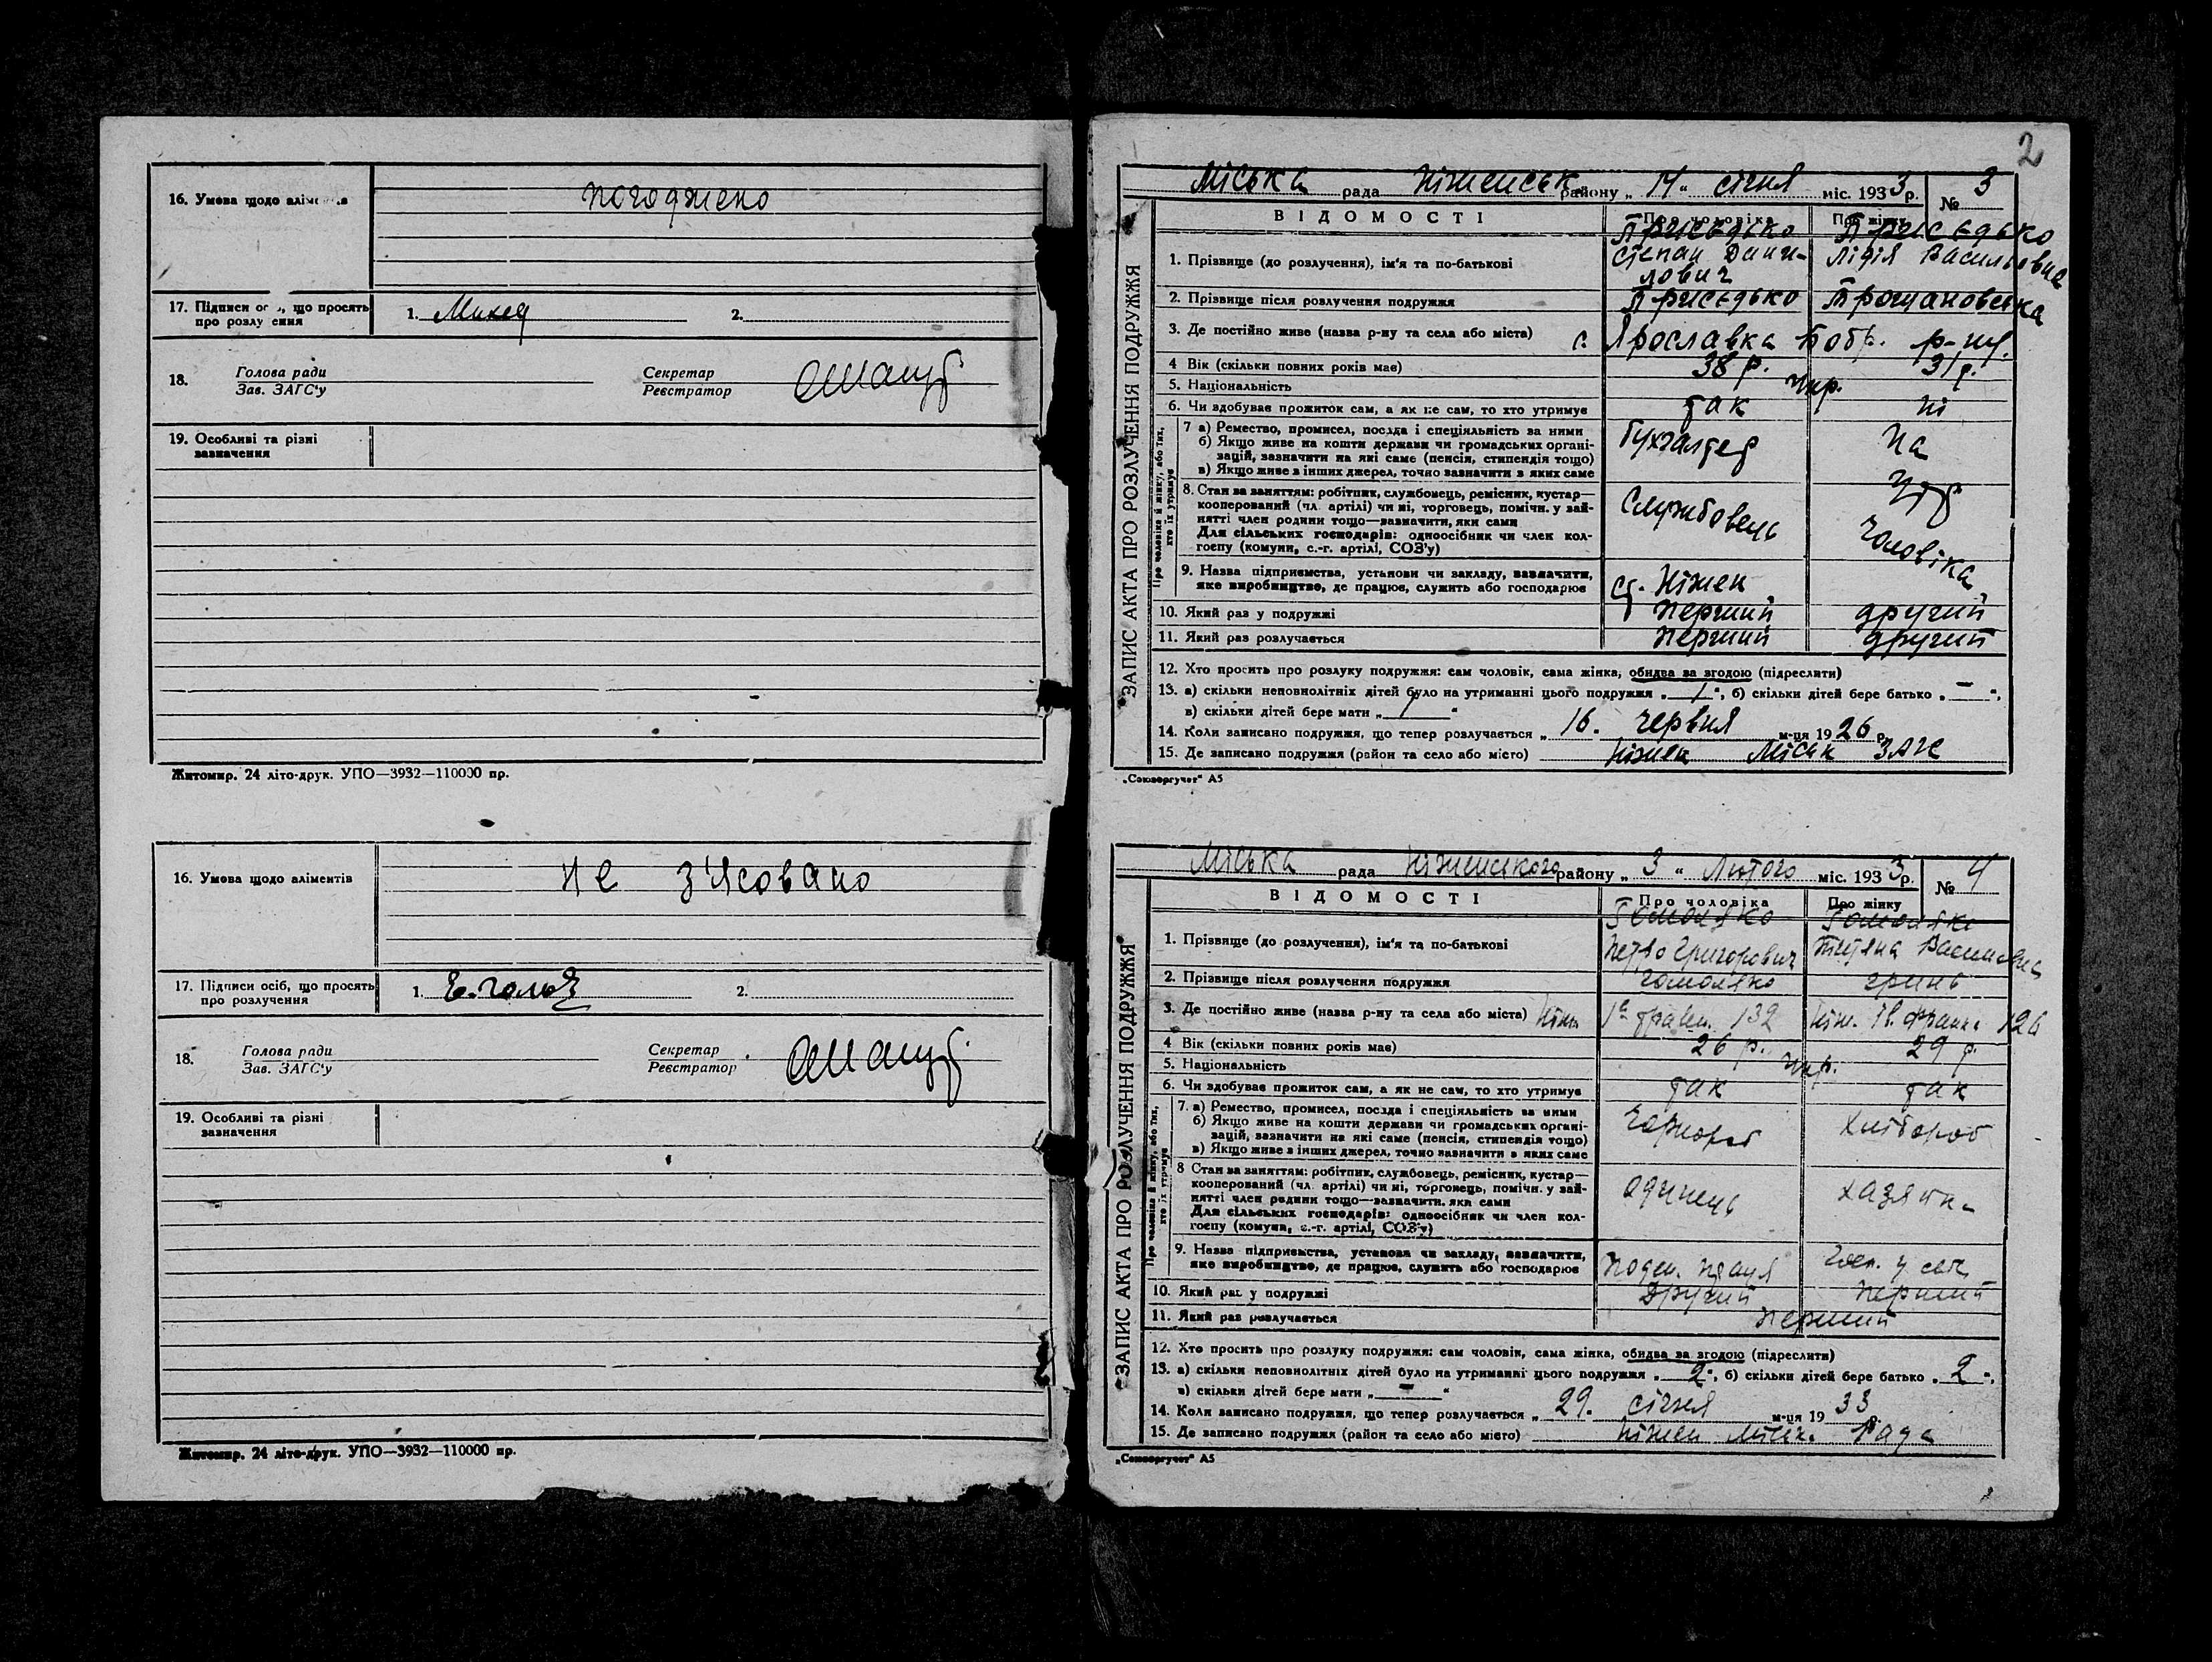 16. Умова щодо
погоджено
17. Підписи що просять
про розлу ення
1.
2.
18.
Голова ради
Зав. ЗАГС'у
Секретар
Реєстратор
19. Особливі та різні
зазначення
Житомир. 24 літо-друк. УПО—3932—110000 пр.
16. Умова щодо аліментів
не з'ясовано
17. Підписи осіб, що просять
про розлучення
1.
2.
18.
Голова ради
Зав. ЗАГС'у
Секретар
Реєстратор
19. Особливі та різні
зазначення
Житомир. 24 літо-друк. УПО—3932—110000 пр.
2
Міська рада Ніженськ району „ 14 “ січня міс. 1933 р. № 3
ЗАПИС АКТА ПРО РОЗЛУЧЕННЯ ПОДРУЖЖЯ
ВІДОМОСТІ Про чоловіка Про жінку
Приседько Приседько
1. Прізвище (до розлучення), ім'я та по-батькові Степан Дани- Лідія Васильовна
лович
2. Прізвище після розлучення подружжя Приседько
3. Де постійно живе (назва р-ну та села або міста) с. Ярославка Бобр. р-ну.
4 Вік (скільки повних років має) 38 р. 31 р.
5. Національність Укр.
6. Чи здобуває прожиток сам, а як не сам, то хто утримує так ні
Про чоловіка й жінку, або тих, хто їх утримує
7 а) Ремество, промисел, посада і спеціяльність за ними
б) Якщо живе на кошти держави чи громадських органі-
зацій, зазначити на які саме (пенсія, стипендія тощо)
в) Якщо живе з інших джерел, точно зазначити з яких саме
Бухгалтер На
8. Стан за заняттям: робітник, службовець, ремісник, кустар—
кооперований (чл. артілі) чи ні, торговець, помічн. у зай-
нятті член родини тощо—зазначити, яки сами
Для сільських господарів: одноосібник чи член кол-
госпу (комуни, с.-г. артілі, СОЗ'у)
Службовець чоловіка
9. Назва підприємства, установи чи закладу, зазначити,
яке виробництво, де працює, служить або господарює
ст. Ніжен
10. Який раз у подружжі перший другий
11. Який раз розлучається перший другий
12. Хто просить про розлуку подружжя: сам чоловік, сама жінка, обидва за згодою (підреслити)
13. а) скільки неповнолітніх дітей було на утриманні цього подружжя „ 1 “, б) скільки дітей бере батько „ — “,
в) скільки дітей бере мати „ 1 “
14. Коли записано подружжя, що тепер розлучається „ 16. червня м-ця 1926 р.
15. Де записано подружжя (район та село або місто) Ніжен Міськ ЗАГС
„Союзоргучет“ А5
Міська рада Ніженського району „ 3 “ Лютого міс. 1933 р. № 4
ЗАПИС АКТА ПРО РОЗЛУЧЕННЯ ПОДРУЖЖЯ
ВІДОМОСТІ Про чоловіка Про жінку
Гомоляко Гомоляко
1. Прізвище (до розлучення), ім'я та по-батькові Петро Григорович Тетяна Василівна
2. Прізвище після розлучення подружжя Гомоляко Гринь
3. Де постійно живе (назва р-ну та села або міста) Ніжен 1е травн. 132 Ніж. Ів. Франка 126
4 Вік (скільки повних років має) 26 р. 29 р.
5. Національність Укр.
6. Чи здобуває прожиток сам, а як не сам, то хто утримує так так
Про чоловіка й жінку, або тих, хто їх утримує
7. а) Ремество, промисел, посада і спеціяльність за ними
б) Якщо живе на кошти держави чи громадських органі-
зацій, зазначити на які саме (пенсія, стипендія тощо)
в) Якщо живе з інших джерел, точно зазначити з яких саме
Чорнороб хлібороб
8 Стан за заняттям: робітник, службовець, ремісник, кустар—
кооперований (чл. артілі) чи ні, торговець, помічн. у зай-
нятті член родини тощо—зазначити, яки сами
Для сільських господарів: одноосібник чи член кол-
госпу (комуна, с.-г. артілі, СОЗ'у)
одинець
9. Назва підприємства, установа чи закладу, зазначити,
яке виробництво, де працює, служить або господарює
10. Який раз у подружжі Другий перший
11. Який раз розлучається перший
12. Хто просить про розлуку подружжя: сам чоловік, сама жінка, обидва за згодою (підреслити)
13. а) скільки неповнолітніх дітей було на утриманні цього подружжя „ 2 “, б) скільки дітей бере батько „ 2 “,
в) скільки дітей бере мати „ — “
14. Коли записано подружжя, що тепер розлучається „ 29. січня м-ця 1933 р.
15. Де записано подружжя (район та село або місто) Ніжен Міськ. Рада
„Союзоргучет“ А5